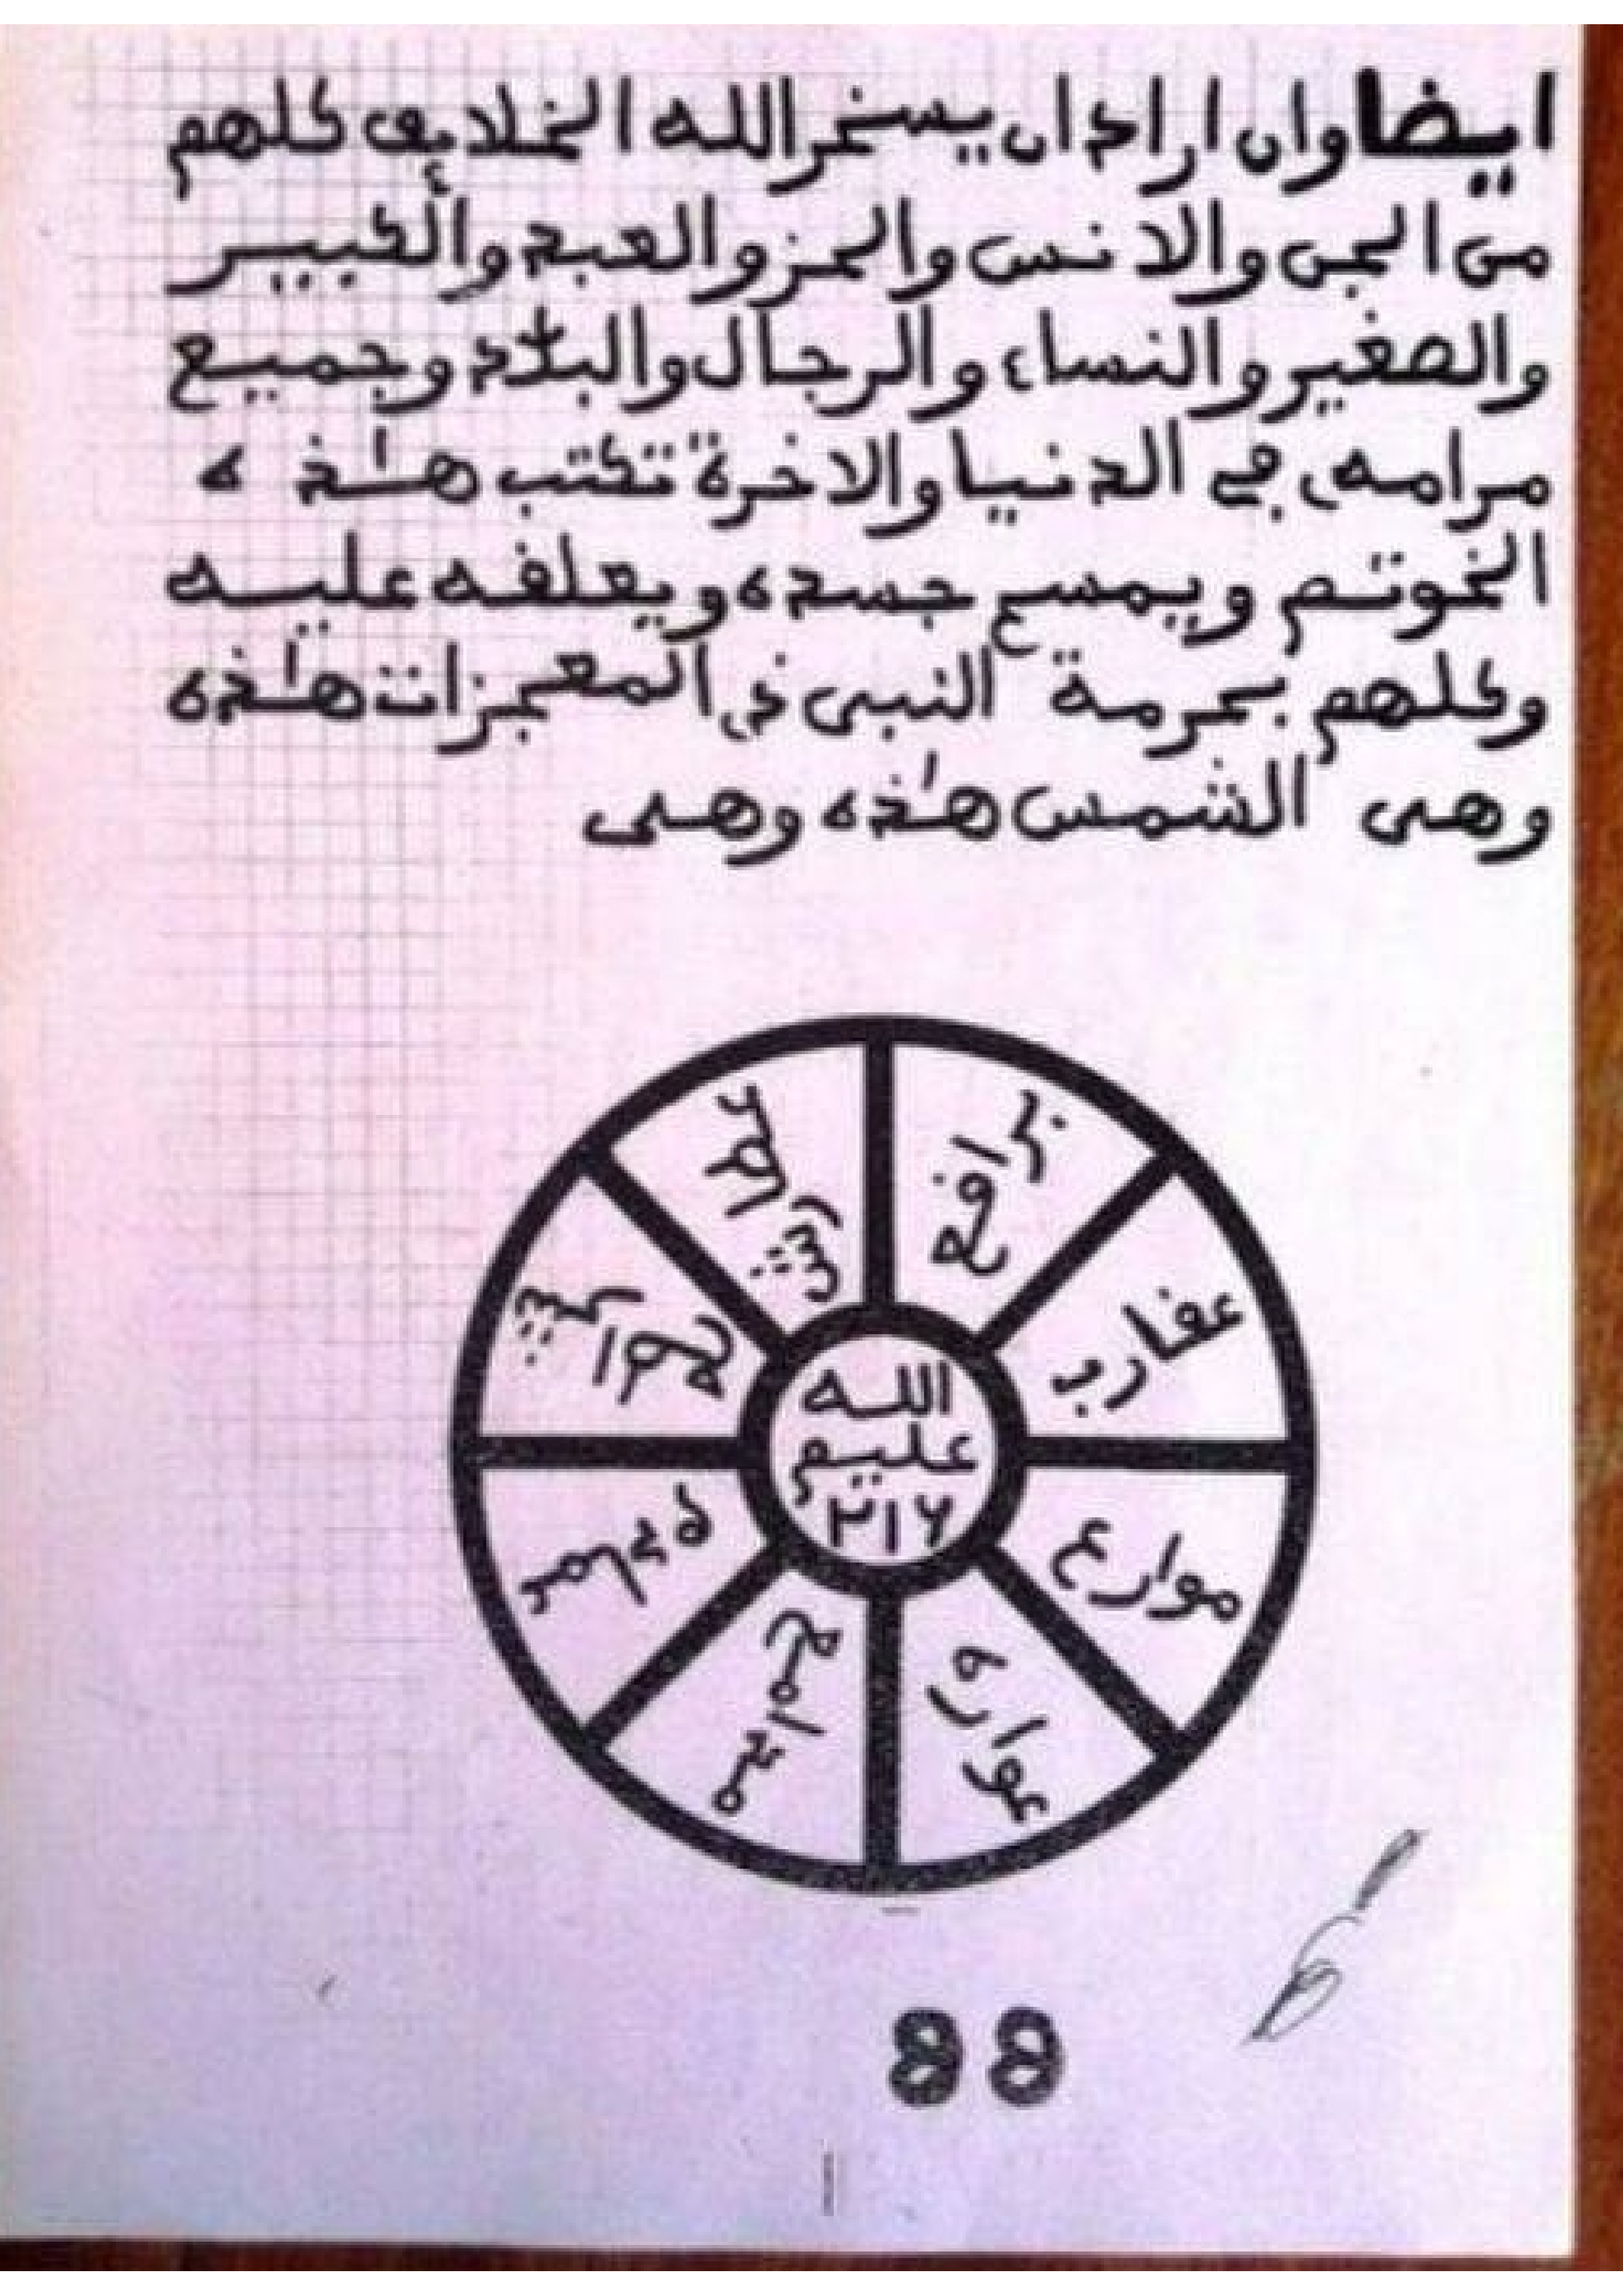 ايضا وان اراد ان يسخر الله الخلايق كلهم
من الجن والانس والحر والعبد والكبير
والصغير والنساء والرجال والبلاد وجميع
مرامه في الدنيا والاخرة تكتب هذه
الخوتم ويمسح جسده ويعلقه عليه
وكلهم بحرمة النبي ذي المعجزات هذه
وهي الشمس هذه وهي
الله
عليم
٢١٦
عفارب
موارع
عواره
88